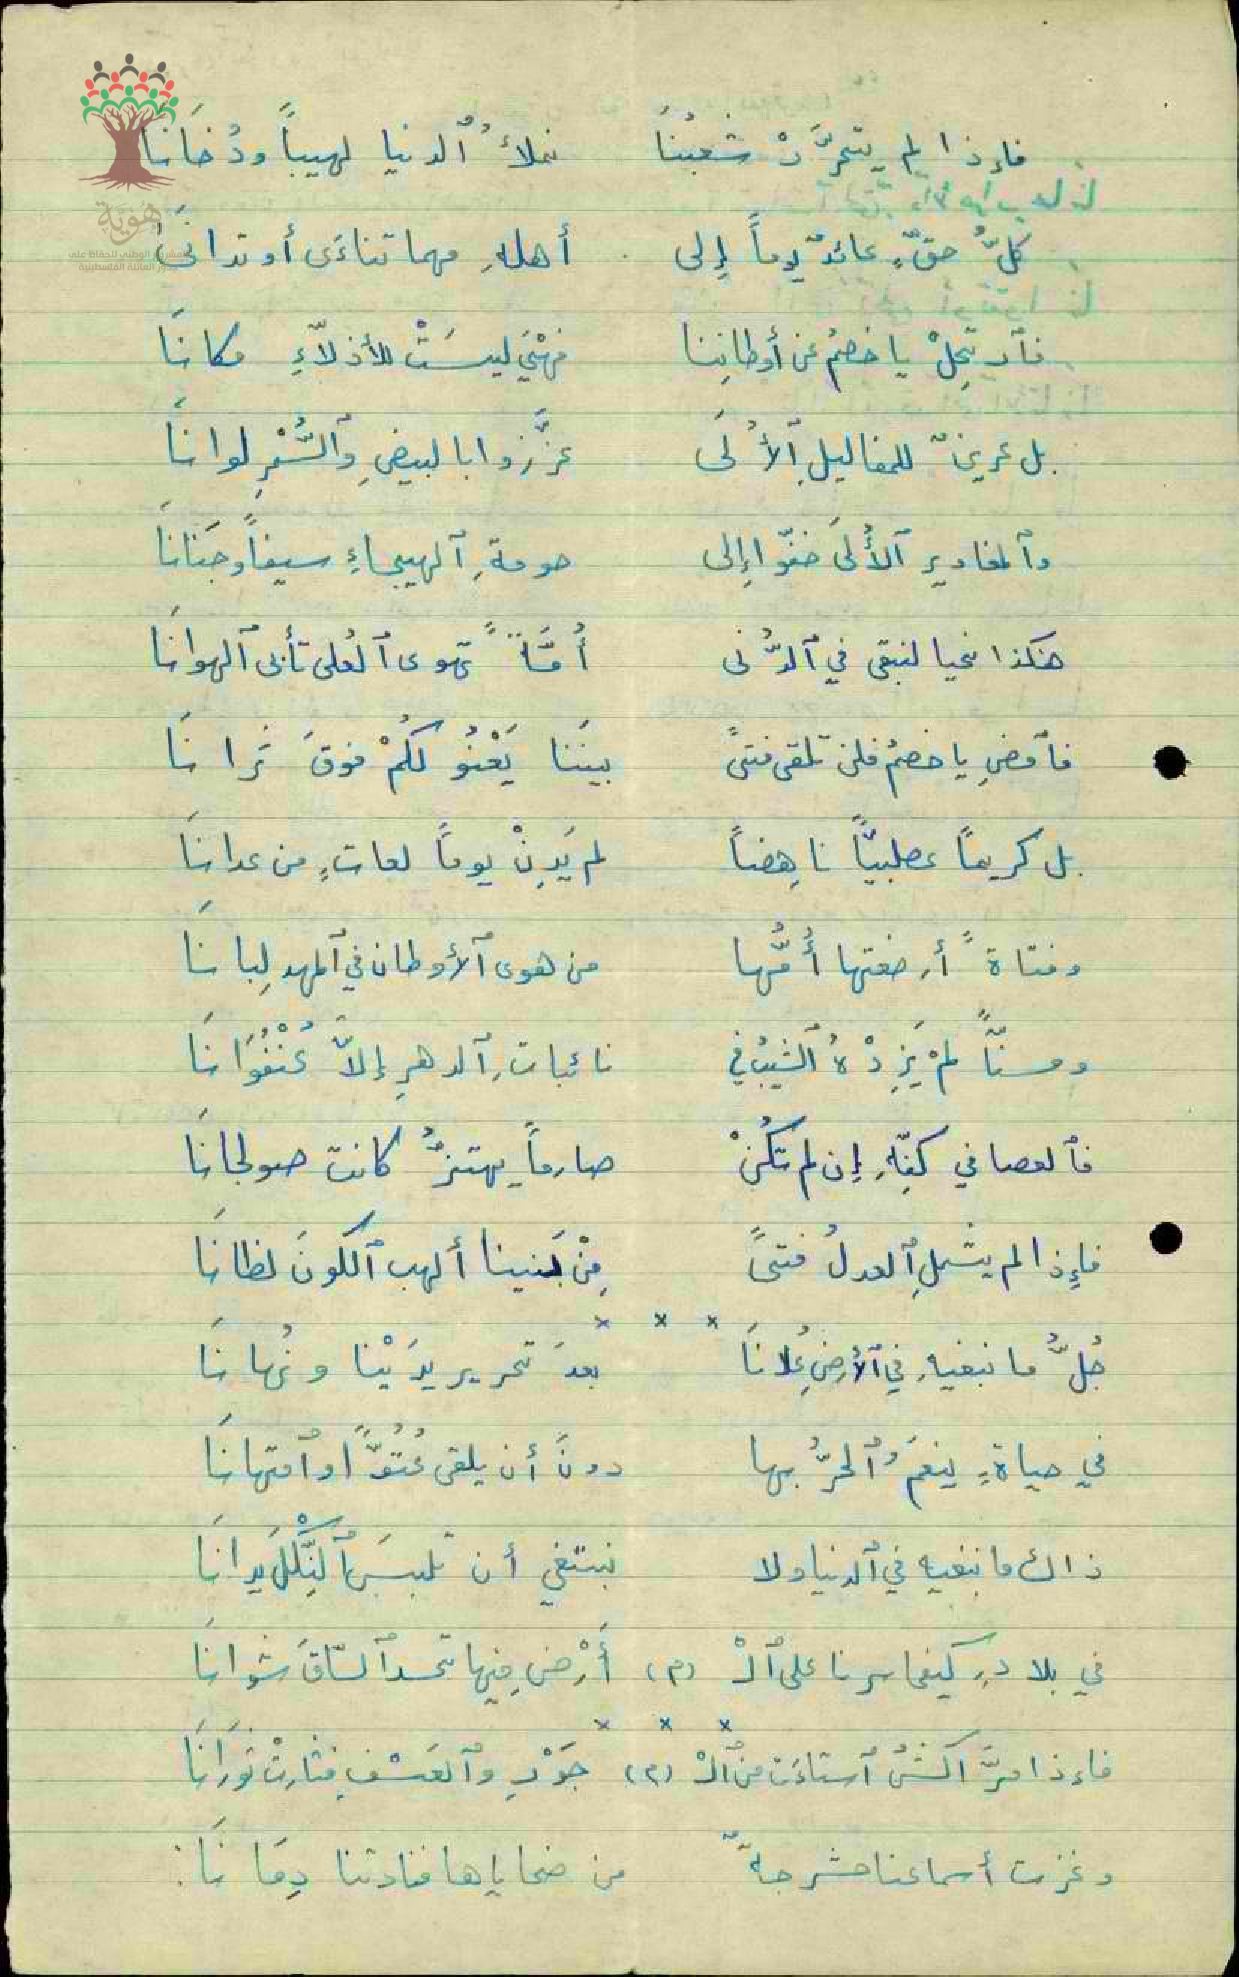 هوية
فإذا لم يتحرَّرْ شعبُنَا نملأُ ٱلدنيا لهيباً ودُخَانَا
كلُّ حقٍّ عائدٌ يوماً إلى أهلهِ مهما تناءَى أو تدانَى
فٱرتحِلْ يا خصمُ عن أوطانِنا فهْيَ ليسَتْ للأذلّاءِ مكانَا
بل عرينٌ للمغاليلِ ٱلأُلَى عزَّزوا بالبيضِ وٱلسُّمْرِ لوانَا
وٱلمغاوير ٱلأُلَى خفّوا إلى حومةِ ٱلهيجاءِ سيفاً وجَنَانَا
هكذا نحيا لنبقى في ٱلدُّنى أُمَّةً تهوى ٱلعُلى تأبى ٱلهوانَا
فٱمضِ يا خصمُ فلن تلقى فتىً بيننَا يَعْنُو لكُمْ فوقَ ثَرانَا
بل كريماً عصلبيّاً ناهِضاً لم يَدِنْ يوماً لعاتٍ من عدانَا
وفتاةً أرضعتها أُمُّها من هوى ٱلأوطان في ٱلمهدِ لِبانَا
ومسنّاً لمْ يَزِدْهُ ٱلشيبُ في نائباتِ ٱلدهرِ إلاَّ عُنْفُوَانَا
فٱلعصا في كفِّهِ إن لم تكُنْ صارماً يهتزُّ كانت صولجانَا
فإذا لم يشملِ ٱلعدلُ فتىً مِنْ بَنينا ألهب ٱلكونَ لظانَا
× × ×
جُلُّ ما نبغيهِ في ٱلأرضِ عُلانَا بعدَ تحرير يدَيْنا ونُهانَا
في حياةٍ ينعَمُ ٱلحرُّ بها دونَ أن يلقى عُتُوّاً وٱمتهانَا
ذاك ما نبغيه في ٱلدنيا ولا نبتغي أن تلبسَ ٱلنِّكْلَ يدانَا
في بلادٍ كيفما سرنا على ٱلـْ (م) أَرْضِ فيها تحسد ٱلسّاقَ شوانَا
× × ×
فإذا مرَّ ٱستاءَت من ٱلـْ (م) جَوْرِ وٱلعَسْفِ فثارتْ ثَوَرَانَا
وغزت أسماعنا حشرجةٌ من ضحاياها فنادتنا دِمَانَا: